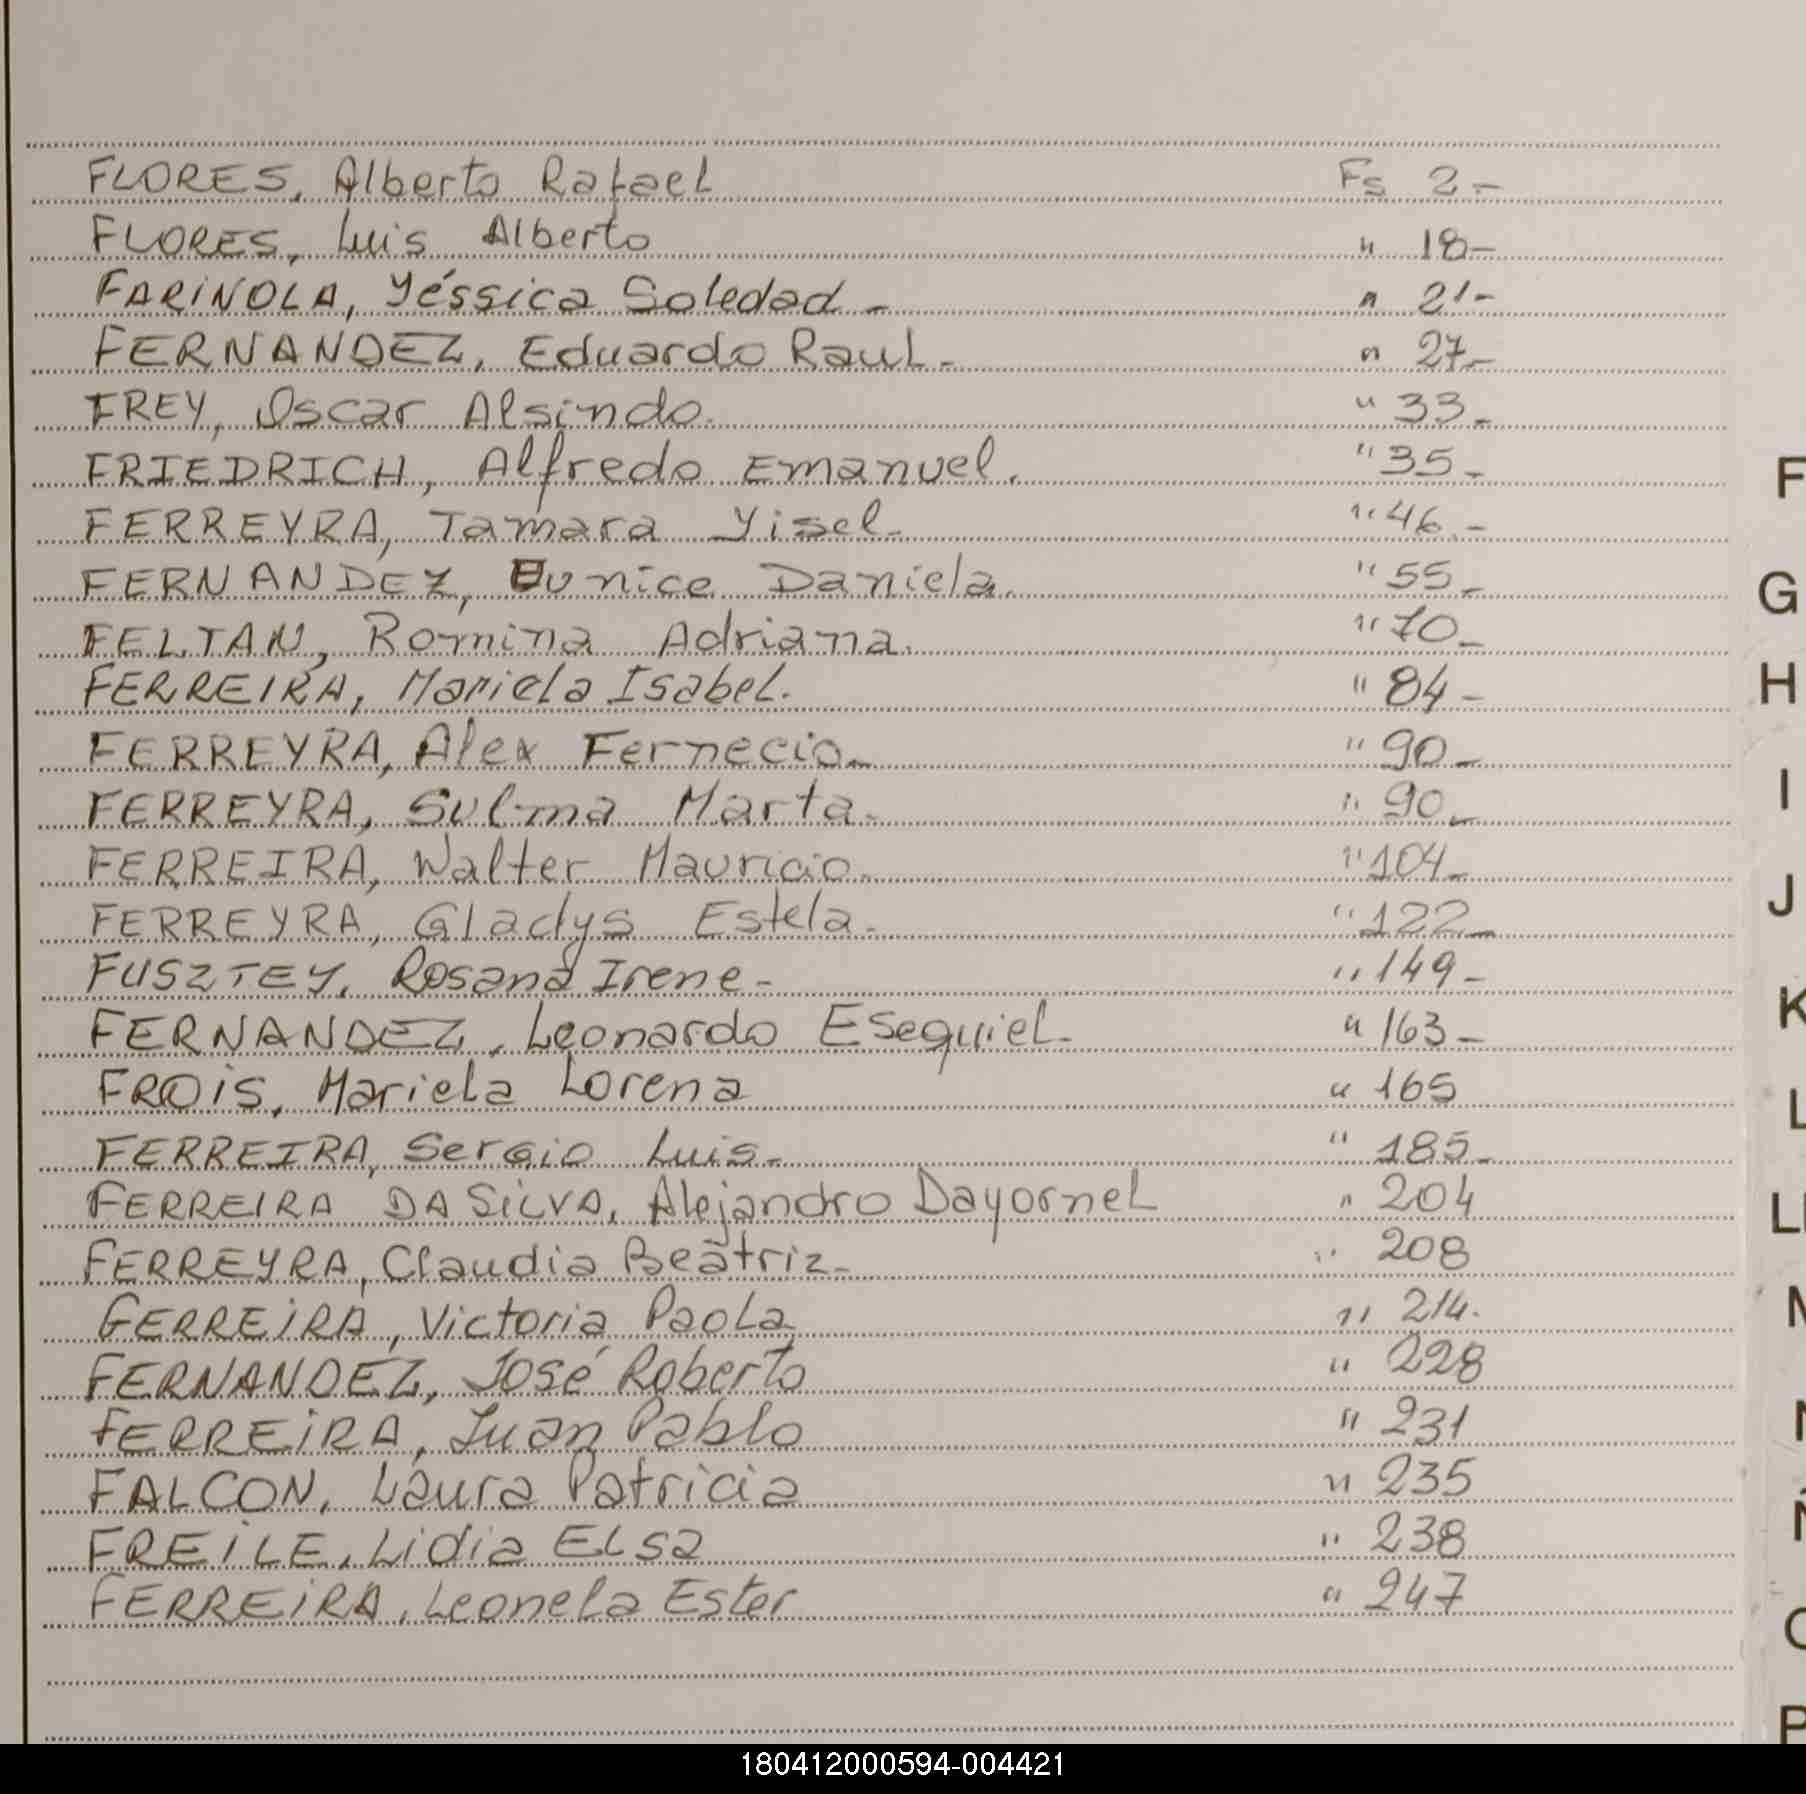 FLORES, Alberto Rafael Fs 2.-
FLORES, Luis Alberto " 18-
FARINOLA, Yéssica Soledad - " 21-
FERNANDEZ, Eduardo Raul - " 27-
FREY, Oscar Alsindo. " 33-
FRIEDRICH, Alfredo Emanuel. " 35-
FERREYRA, Tamara Yisel- " 46-
FERNANDEZ, Eunice Daniela. " 55-
FELTAN, Romina Adriana. " 70-
FERREIRA, Mariela Isabel. " 84-
FERREYRA, Alex Fernecio- " 90-
FERREYRA, Sulma Marta- " 90-
FERREIRA, Walter Mauricio- " 104-
FERREYRA, Gladys Estela- " 122-
FUSZTEY, Rosana Irene- " 149-
FERNANDEZ, Leonardo Esequiel- " 163-
FROIS, Mariela Lorena " 165
FERREIRA, Sergio Luis- " 185-
FERREIRA DA SILVA, Alejandro Dayornel " 204
FERREYRA, Claudia Beatriz- " 208
GERREIRA, Victoria Paola " 214.
FERNANDEZ, José Roberto " 228
FERREIRA, Juan Pablo " 231
FALCON, Laura Patricia " 235
FREILE, Lidia Elsa " 238
FERREIRA, Leonela Ester " 247
F
G
H
I
J
K
L
LL
M
N
Ñ
O
P
180412000594-004421